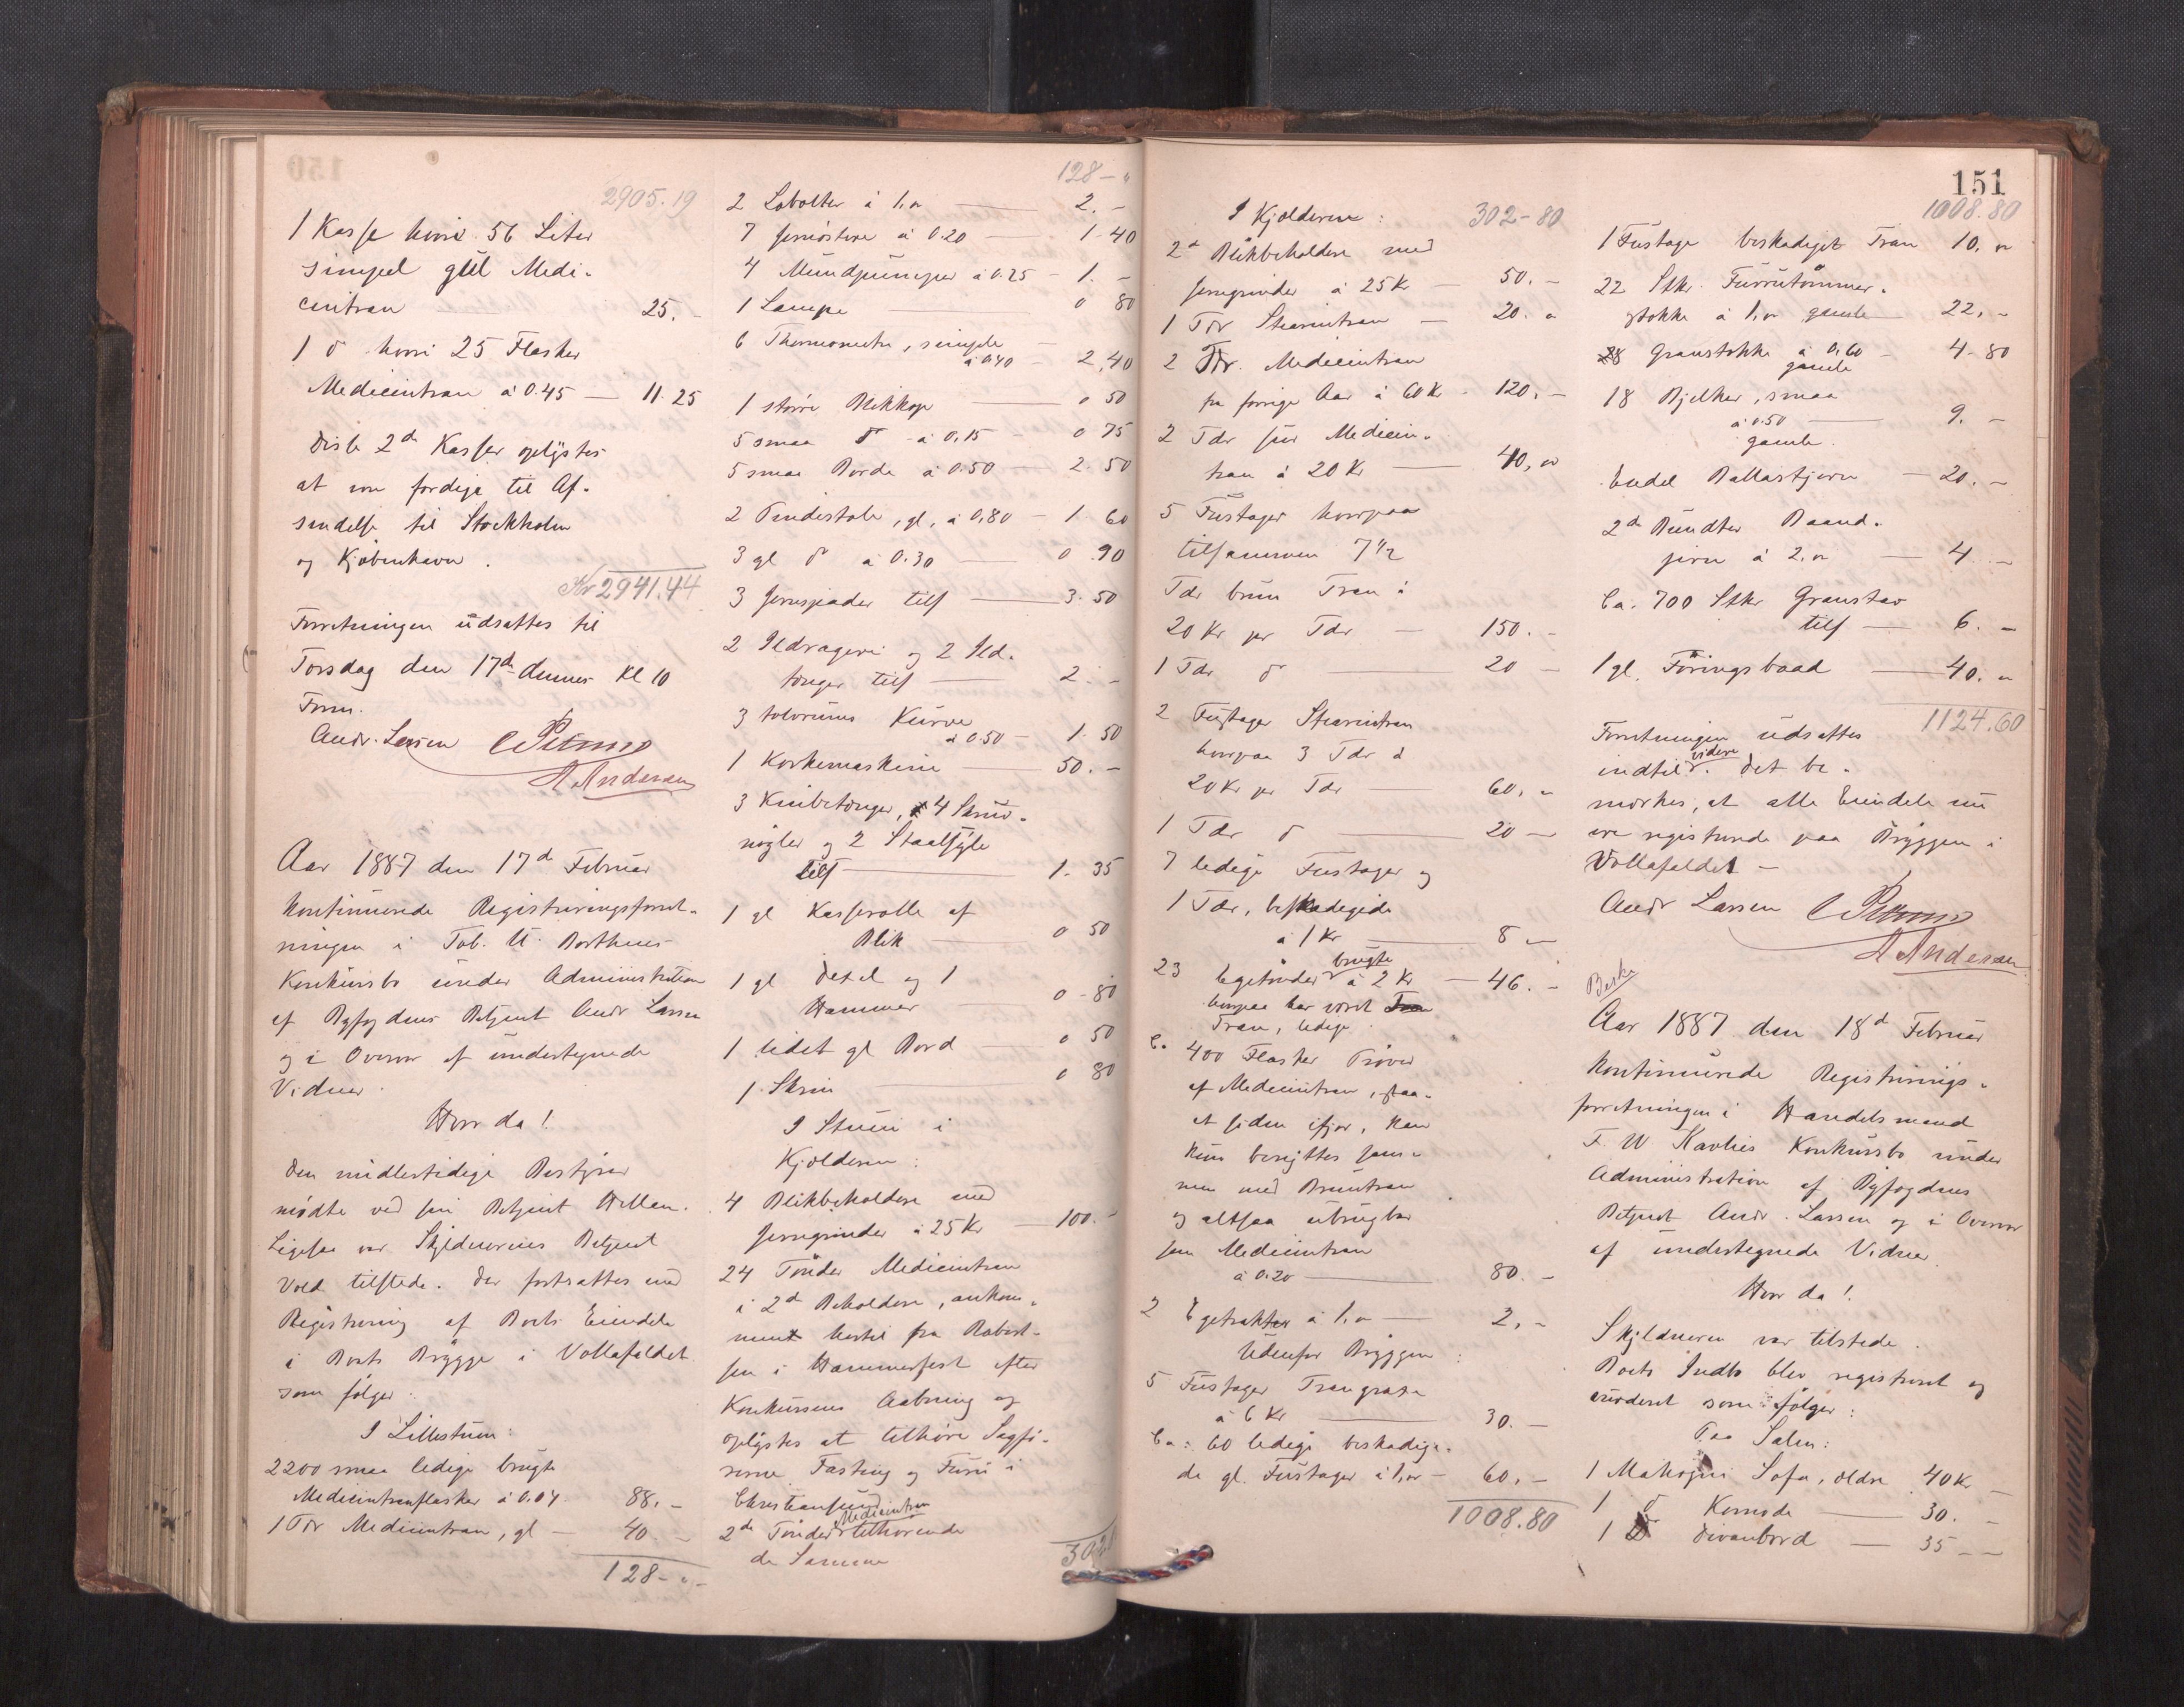 2905.19
1 Kasse hvori 56 Liter
simpel gul Medi-
cintran 25. -
1 do hvori 25 Flasker
Medicintran à 0.45 — 11.25
Disse 2de Kasser oplystes
at være færdige til Af-
sendelse til Stockholm
og Kjøbenhavn.
Kr 2941.44
Forretningen udsattes til
Torsdag den 17de dennes Kl 10
Form.
Andr. Larsen
A Andersen
Aar 1887 den 17de Februar
kontinuerede Registreringsforret-
ningen i Tob. U. Borthens
Konkursbo under Administration
af Byfogdens Betjent Andr Larsen
og i Overvær af undertegnede
Vidner.
Hvor da!
Den midlertidige Bestyrer
mødte ved sin Betjent Hellan.
Ligesaa var Skyldnerens Betjent
Vold tilstede. Der fortsattes med
Registrering af Boets Eiendele
i Boets Brygge i Vollafaldet
som følger:
I Lillestuen:
2200 smaa ledige brugte
Medicintranflasker à 0.04. 88. -
1 Tdr Medicintran, gl — 40. -
128 - " -
128 - "
2 Lobolter à 1,00 — 2. -
7 Jernøstere à 0.20 — 1.40
4 Mundpumper à 0.25 - 1. -
1 Lampe — 0 80
6 Thermometre, simple
à 0.40 - 2,40
1 større Blikkop — 0 50
5 smaa do à 0,15 - 0 75
5 smaa Borde à 0.50 — 2.50
2 Pindestole, gl, à 0,80 - 1 60
3 gl do à 0.30 — 0.90
3 Jernspader tils — 3.50
2 Ildragere og 2 Ild-
tænger tils — 2. -
3 tolvrums Kurve
à 0.50 - 1.50
1 Korkemaskine — 50. -
3 Knibetænger, 4 Skrue-
nøgler og 2 Staalsyle
tils — 1.35
1 gl Kasserolle af
Blik — 0 50
1 gl Dexel og 1
Hammer — 0 - 80
1 lidet gl Bord — 0 50
1 Skrin — 0 80
I Stuen i
Kjælderen:
4 Blikbeholdere med
Jerngrinder à 25 Kr — 100. -
24 Tønder Medicintran
i 2de Beholdere, ankom-
ment hertil fra Robert-
sen i Hammerfest efter
Konkursens Aabning og
oplystes at tilhøre Sagfø-
rerne Fasting og Furu i
Christiansund
2de Tønder Medicintran tilhørende
de Samme
302
151
I Kjælderen: 302 - 80
2de Blikbeholdere med
Jerngrinder à 25 Kr — 50. -
1 Tdr Stearintran — 20. "
2 Tdr. Medicintran
fra forrige Aar à 60 Kr - 120. -
2 Tdr sur Medicin-
tran à 20 Kr — 40, 00
5 Fustager hvorpaa
tilsammen 7 1/2
Tdr brun Tran à
20 Kr pr Tdr — 150. -
1 Tdr do — 20 -
2 Fustager Stearintran
hvorpaa 3 Tdr à
20 Kr pr Tdr — 60. "
1 Tdr do — 20 -
7 ledige Fustager og
1 Tdr, beskadigede
à 1 Kr — 8 -
23 Egetønder brugte à 2 Kr — 46. -
hvorpaa har været
Tran, ledige.
Ca 400 Flasker Prøver
af Medicintran, staa-
et siden ifjor, kan
kun benyttes sam-
men med Bruntran
og altsaa ubrugbar
som Medicintran
à 0.20 — 80. -
2 Egetrakter à 1,00 — 2, -
Udenfor Bryggen:
5 Fustager Trangraxe
à 6 Kr — 30. -
Ca: 60 ledige beskadige-
de gl. Fustager à 1,00 - 60. -
1008.80
1008.80
1 Fustage beskadiget Tran 10, 00
22 Stkr. Furrutømmer-
stokke à 1,00 gamle 22. -
8 Granstokke à 0,60 - 4.80
gamle
18 Bjelker, smaa
à 0.50 — 9. -
gamle.
Endel Ballastjern — 20. -
2de Bundter Baand-
jern à 2.00 — 4. -
Ca. 700 Stkr Granstav
tils — 6. -
1 gl. Føringsbaad — 40. "
1124.60
Forretningen udsattes
indtil videre. Det be-
mærkes, at alle Eiendele nu
ere registrerede paa Bryggen i
Vollafaldet —
Andr Larsen
A Andersen
Aar 1887 den 18de Februar
kontinuerede Registrerings-
forretningen i Handelsmand
F. W Kavlies Konkursbo under
Administration af Byfogdens
Betjent Andr. Larsen og i Overvær
af undertegnede Vidner.
Hvor da!
Skyldneren var tilstede.
Boets Indbo blev registreret og
vurderet som følger:
Paa Salen:
1 Mahogni Sofa, ældre 40 Kr -
1 do Komode — 30. -
1 Divanbord — 35 - -